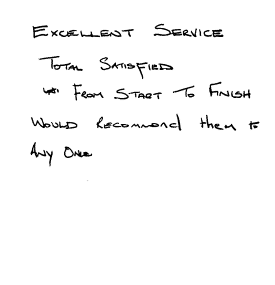 Excellent Service
Total Satisfied
From Start To Finish
Would Recommend them to
Any One